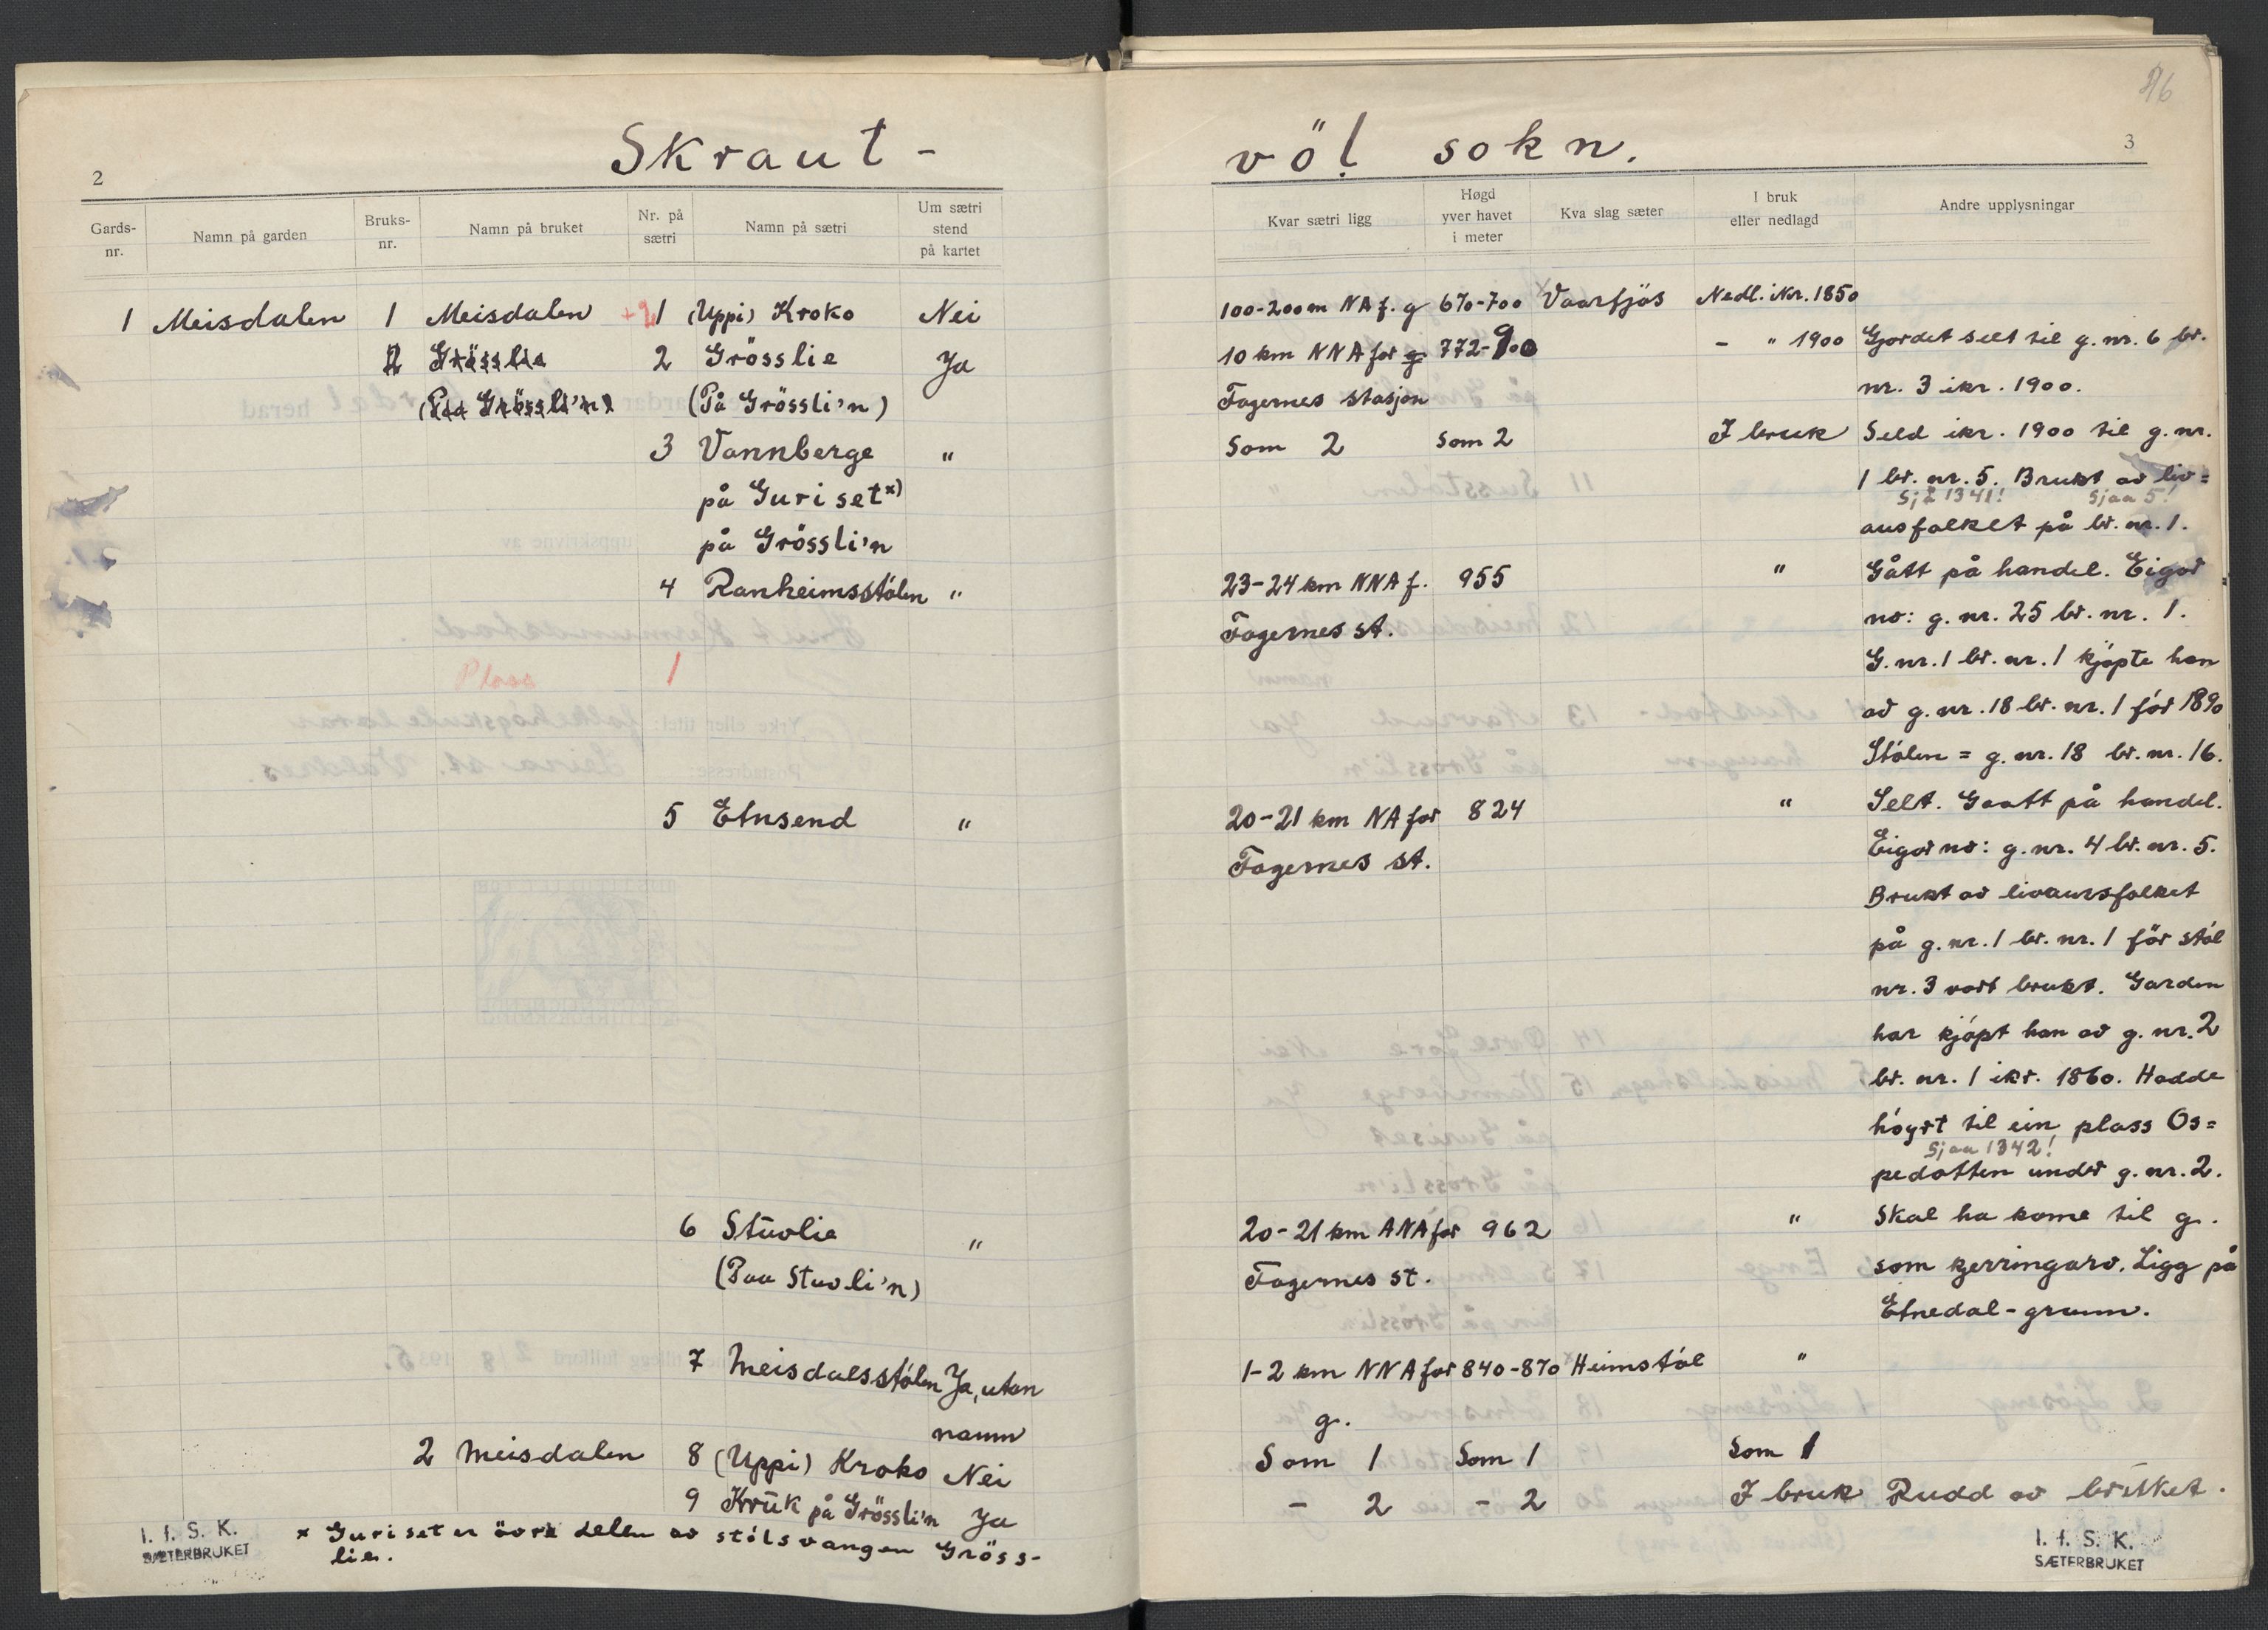 Skraut-
völ sokn.
2
3
Gards-nr.
Namn på garden
Bruks-nr.
Namn på bruket
Nr. på sætri
Namn på sætri
Um sætri stend på kartet
Kvar sætri ligg
Høgd yver havet i meter
Kva slag sæter
I bruk eller nedlagd
Andre upplysningar
1 Meisdalen 1 Meisdalen 1 (Uppi) Kroko Nei 100-200m NA f. g 670-700 Vaarfjös Nedl. ikr. 1850
2 Grösslie 2 Grösslie Ja 10 km NNA for g 772-900 - " 1900 Gjordet selt til g. nr. 6 br.
(Paa Grössli'n) (På Grössli'n) Fagernes stasjon nr. 3 ikr. 1900.
3 Vannberge " Som 2 Som 2 I bruk Seld ikr. 1900 til g. nr.
på Guriset x) 1 br. nr. 5. Brukt av liv=
Sjå 1341! Sjaa 5!
på Grössli'n ausfolket på br. nr. 1.
4 Ranheimsstölen " 23-24 km NNA f. 955 " Gått på handel. Eigar
Fagernes st. no: g. nr. 25 br. nr. 1.
Plass 1 G. nr. 1 br. nr. 1 kjöpte han
av g. nr. 18 br. nr. 1 för 1890
Stölen = g. nr. 18 br. nr. 16.
5 Etnsend " 20-21 km NA for 824 " Selt. Gaatt på handel.
Fagernes st. Eigar no: g. nr. 4 br. nr. 5.
Brukt av livaursfolket
på g. nr. 1 br. nr. 1 för stöl
nr. 3 vart brukt. Garden
har kjöpt han av g. nr. 2
br. nr. 1 ikr. 1860. Hadde
höyrt til ein plass Os=
Sjaa 1342!
pedotten under g. nr. 2.
6 Stuvlie " 20-21 km ANA for 962 " Skal ha kome til g.
(Paa Stuvli'n) Fagernes st. som kjerringarv. Ligg på
Etnedal-grunn.
7 Meisdalsstölen Ja, utan 1-2 km NNA for 840-870 Heimstöl "
namn g.
2 Meisdalen 8 (Uppi) Kroko Nei Som 1 Som 1 Som 1
9 Kruk på Grössli'n Ja - 2 - 2 I bruk Rudd av bruket.
x Guriset er övre delen av stölsvangen Gröss-
lie.
I. f. S. K.
SÆTERBRUKET
I. f. S. K.
SÆTERBRUKET